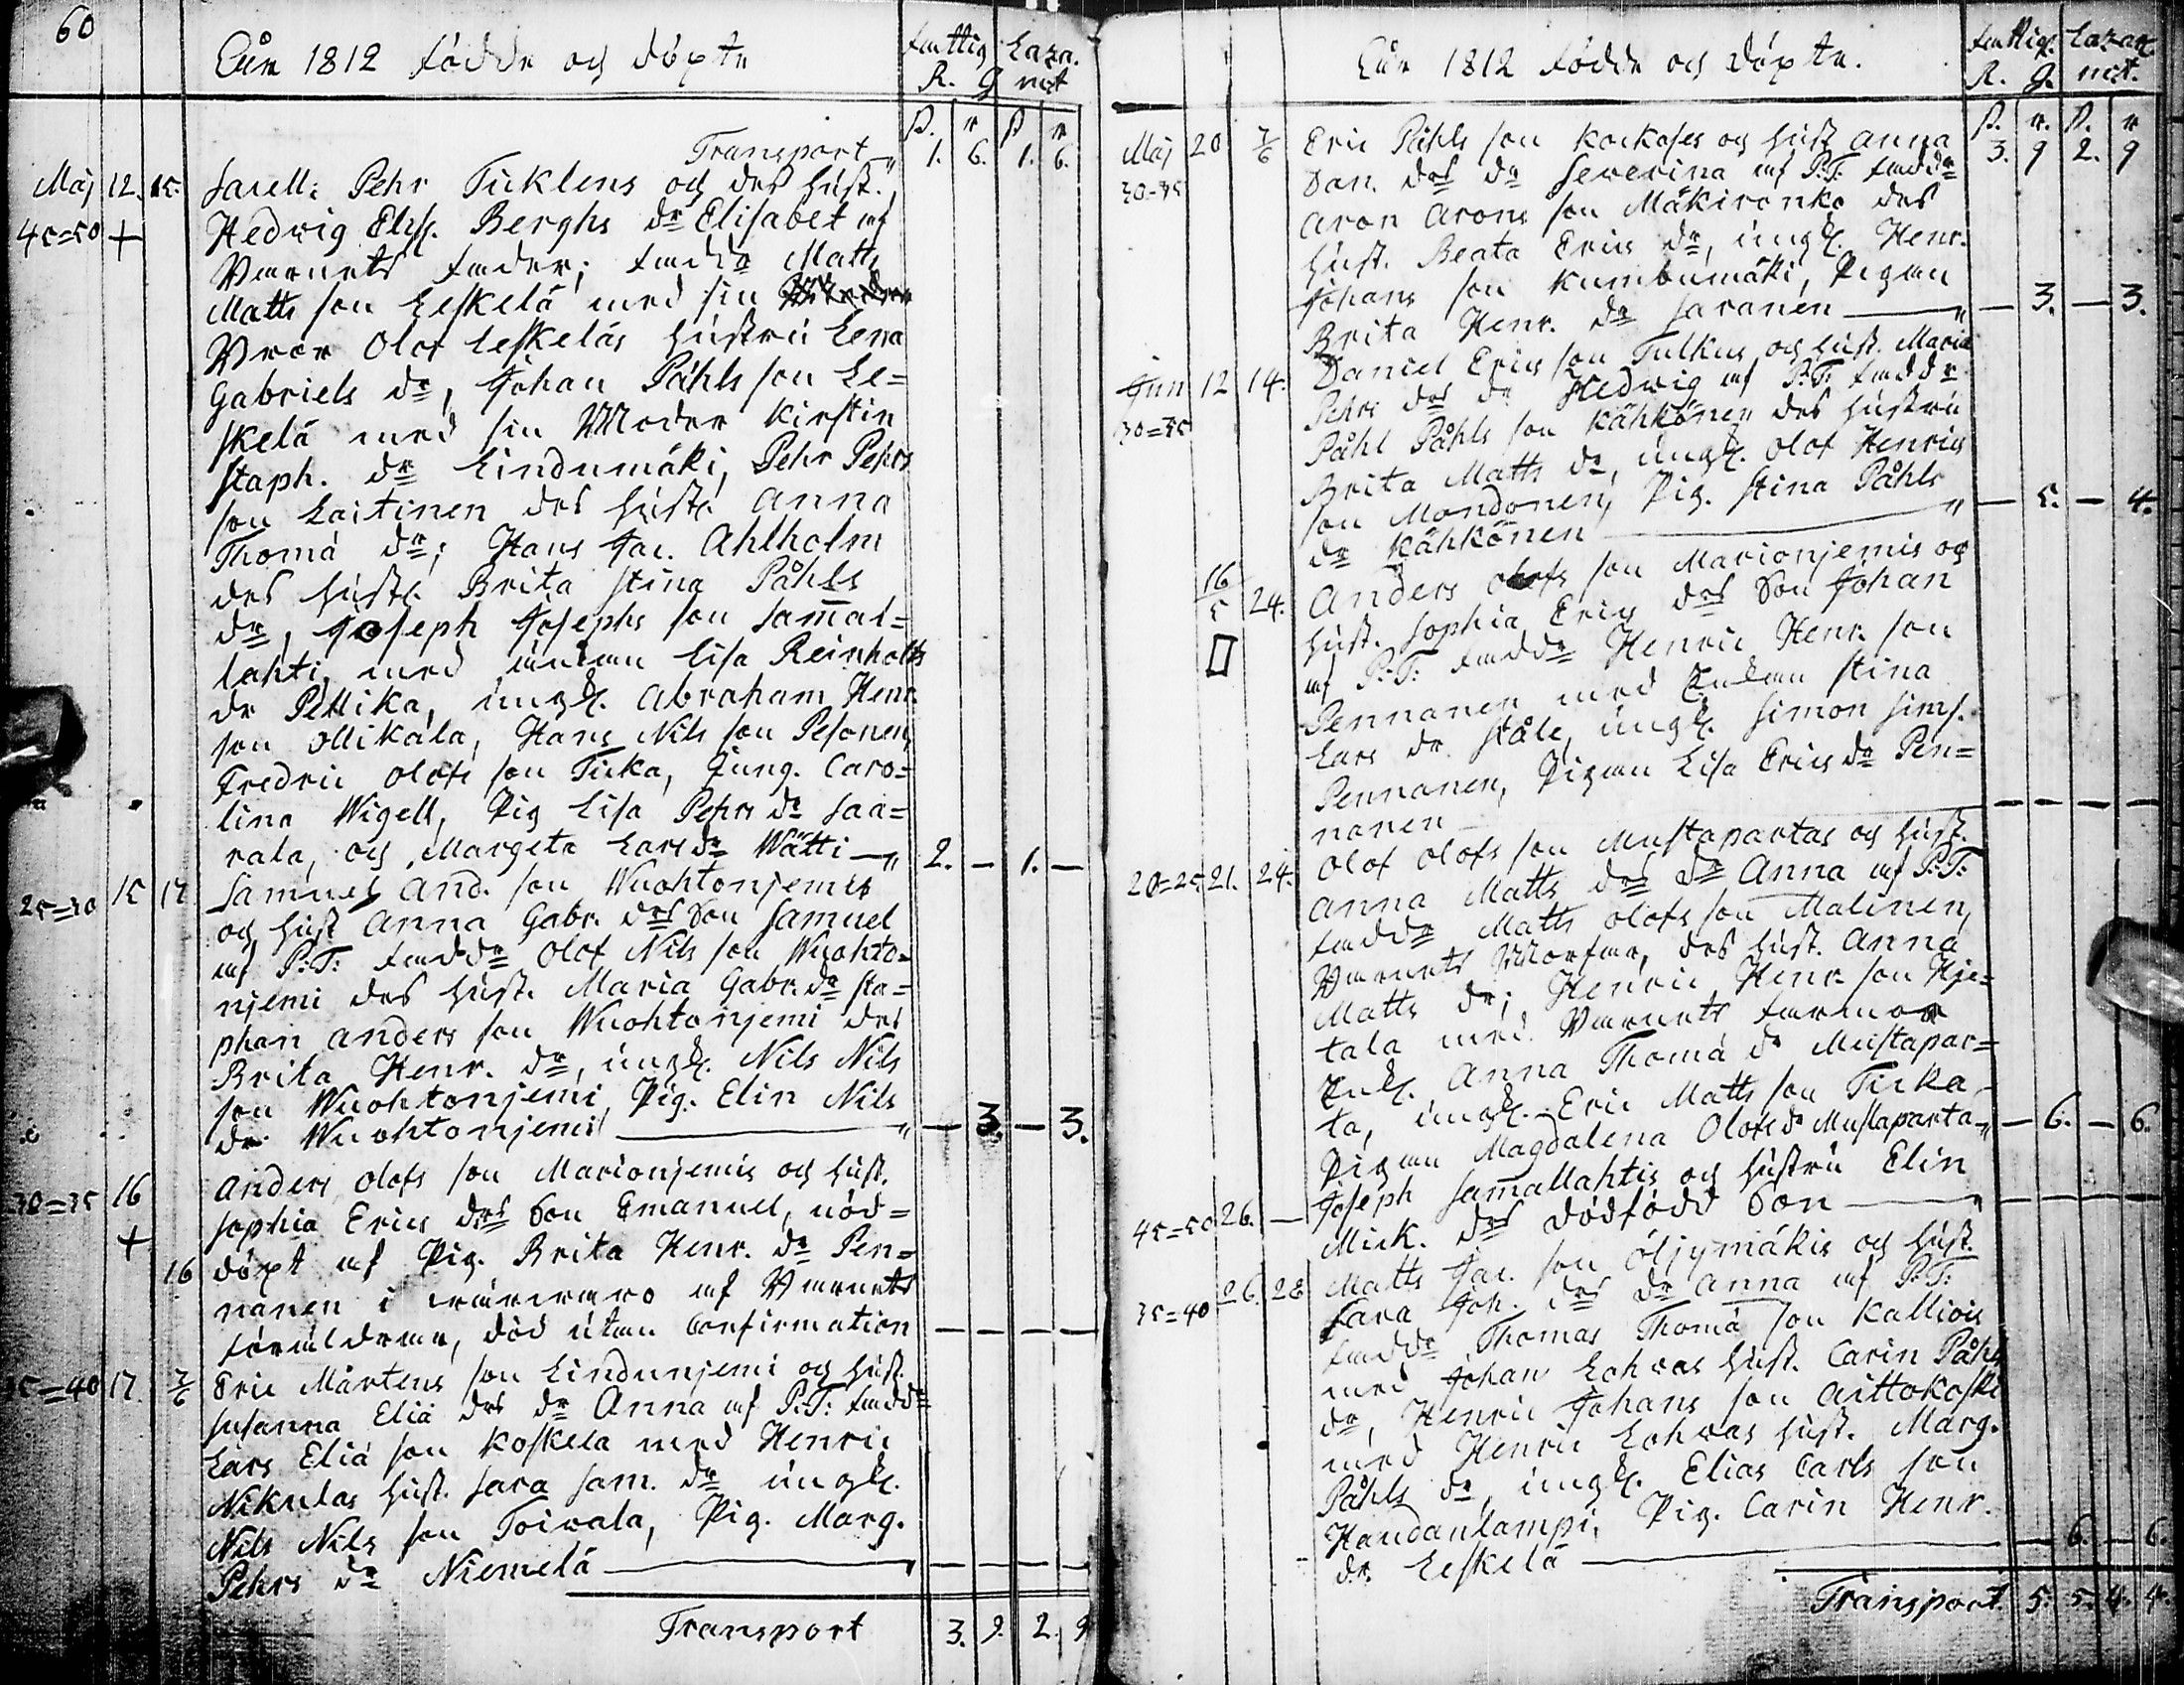 60
Åhr 1812 födde och döpte
Fattig Laza-
R. G ret
P. r P r
Transport 1. 6. 1. 6.
Maj 12. 15. Sacell: Pehr Ticklens och des hust.
45=50 + Hedwig Elis. Berghs dr Elisabet af
Barnets fader; fadd. Matts
Matts son Leskelä med sin
Olof Leskeläs hustru Lena
Gabriels dr, Johan Påhls son Le=
skelä med sin Moder Kirstin
Staph. dr Lindumäki, Pehr Pehrs
son Laitinen des hust. Anna
Thomä dr; Hans Jac. Ahlholm
des hust. Brita Stina Påhls
dr, Joseph Josephs son Sam̅al=
lahti med enkan Lisa Reinholts
dr Pellika, ungk. Abraham Henr.
son Ollikala, Hans Nils son Pesonen,
Fredric Olofs son Ticka, Jung. Caro=
lina Wigell, Pig Lisa Pehrs dr Saa=
rala, och Margeta Lars dr Wätti — 2. — 1. —
25=30 15 17 Samuel And. son Wuohtonjemis
och hust Anna Gabr. des Son Samuel
af P:T: fadd. Olof Nils son Wuohto=
njemi des hust. Maria Gabr. dr Sta=
phan Anders son Wuohtonjemi des
Brita Henr. dr, ungk. Nils Nils
son Wuohtonjemi, Pig. Elin Nils
dr Wuohtonjemi — — 3. — 3.
30=35 16 Anders Olofs son Marionjemis och hust.
+ Sophia Erics des Son Emanuel, nöd=
döpt af Pig. Brita Henr. dr Pen=
16 nanen i närwaro af Barnets
föräldrar, död utan Confirmation — — — —
35=40 17. 7/6 Eric Mårtens son Lindunjemi och hust.
Susanna Eliä des dr Anna af P:T: fadd.
Lars Eliä son Koskela med Henric
Nikulas hust. Sara Sam. dr ungk.
Nils Nils son Toiwala, Pig. Marg.
Pehrs dr Niemelä — — — — —
Transport 3. 9. 2. 9
Åhr 1812 födde och döpte.
Fattig. Lazar.
R. G. ret.
P. r. P. r
3. 9 2. 9
Maj 20 7/6 Eric Påhls son Kockoses och hust Anna
30-35 Dan. des dr Severina af P:T: fadd.
Aron Arons son Mäkironko des
hust. Beata Erics dr, ungk. Henr.
Johans son Kumbumäki, Pigan
Brita Henr. dr Saranen — — 3. — 3.
Jun 12 14. Daniel Erics son Tulkus och hust. Maria
30=35 Pehrs des dr Hedwig af P:T: fadd.
Påhl Påhls son Kähkönen des hustru
Brita Matts dr, ungk. Olof Henrics
son Mondonen, Pig. Stina Påhls
dr Kähkönen — — 5. — 4.
16/5 24. Anders Olofs son Marionjemis och
hust. Sophia Erics des Son Johan
af P:T: fadd. Henric Henr. son
Pennanen med Enkan Stina
Lars dr Ståle, ungk. Simon Sims.
Pennanen, Pigan Lisa Erics dr Pen=
nanen — — — — —
20=25 21. 24. Olof Olofs son Mustapartas och hust.
Anna Matts des dr Anna af P:T:
fadd. Matts Olofs son Malinen,
Barnets Morfar, des hust. Anna
Matts dr; Henric Henr. son Hje=
tala med Barnets farmor
Enk. Anna Thomä dr Mustapar=
ta, ungk. Eric Matts son Ticka,
Pigan Magdalena Olofs dr Mustaparta — — 6. — 6.
45=50 26. — Joseph Sam̅allahtis och hustru Elin
Mick. des Dödfödd Son — — — — —
35=40 26. 28 Matts Jac. son Öljymäkis och hust.
Sara Joh. des dr Anna af P:T:
fadd. Thomas Thomä son Kallios
med Johan Lohwas hust. Carin Påhls
dr, Henric Johans son Aittokoski
med Henric Lohwas hust. Marg.
Påhls dr, ungk. Elias Carls son
Haudanlampi, Pig. Carin Henr.
dr. Leskelä — — 6. — 6.
Transport. 5. 5. 4. 4.